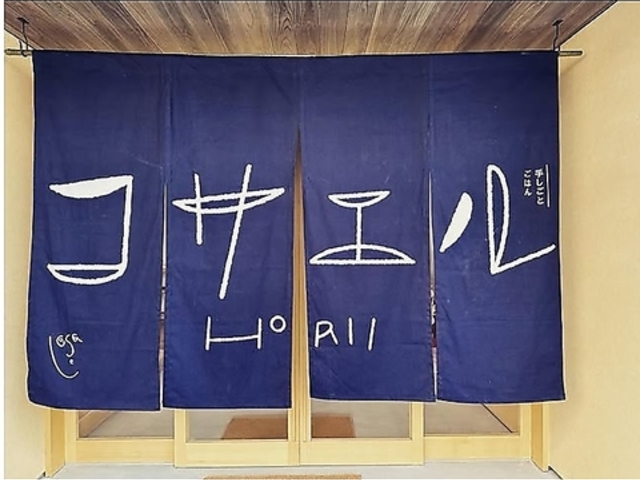 コサエル
手しごと
ごはん
HORII